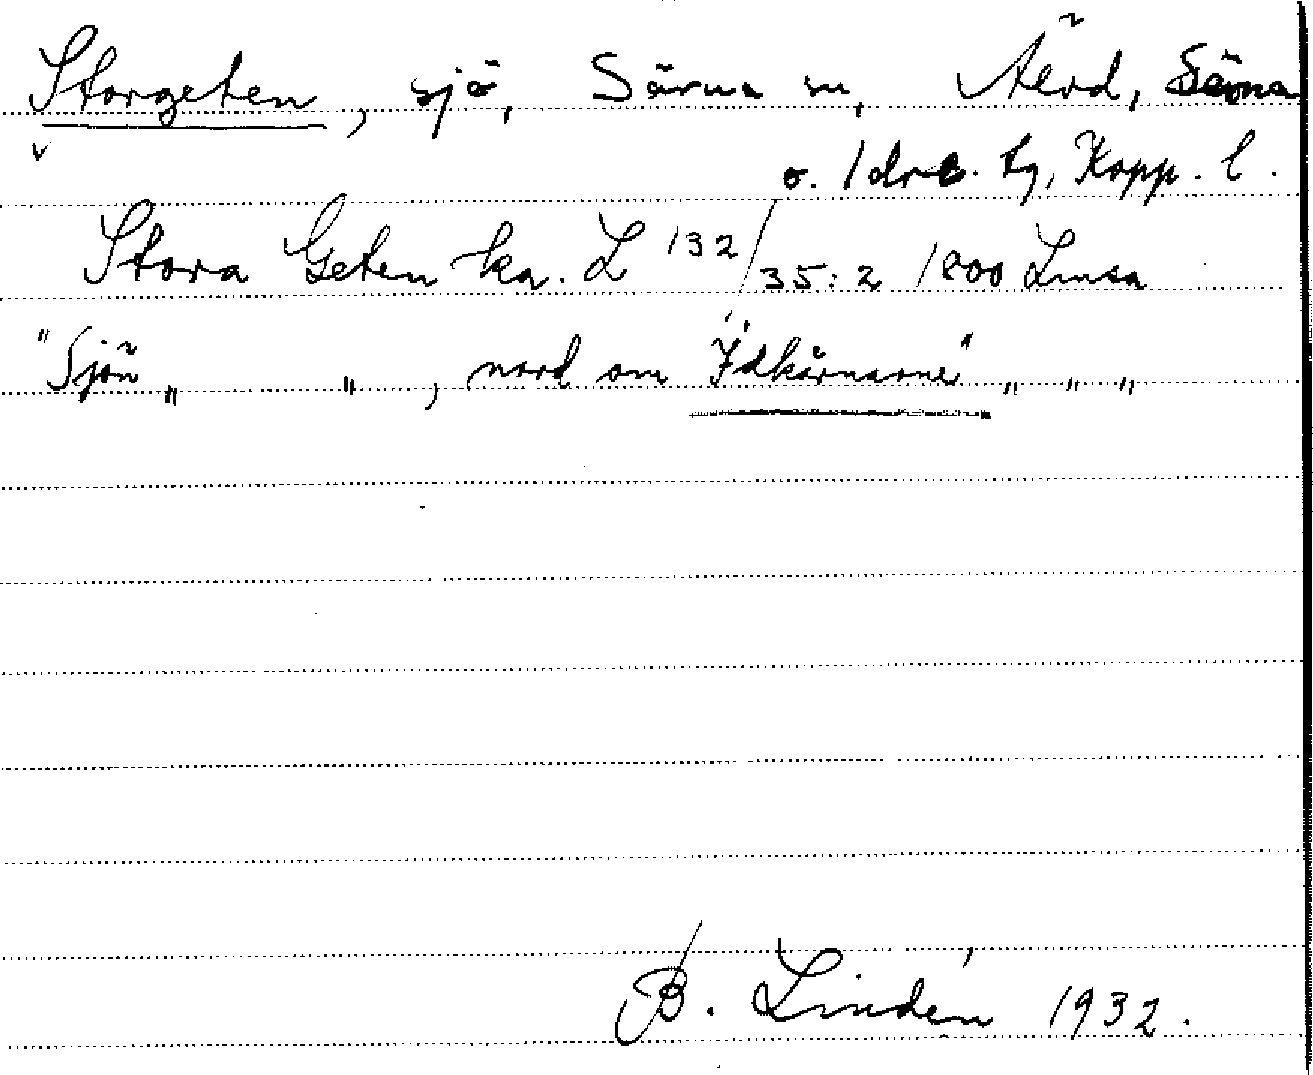 Storgeten, sjö, Särna sn, Älvd, Särna
o. Idre tg, Kopp. l.
Stora Geten ka. L 132/35:2 1800 Lmsa
"Sjön „ „ , nord om Idkärnarne" „ „ „
B. Lindén 1932.